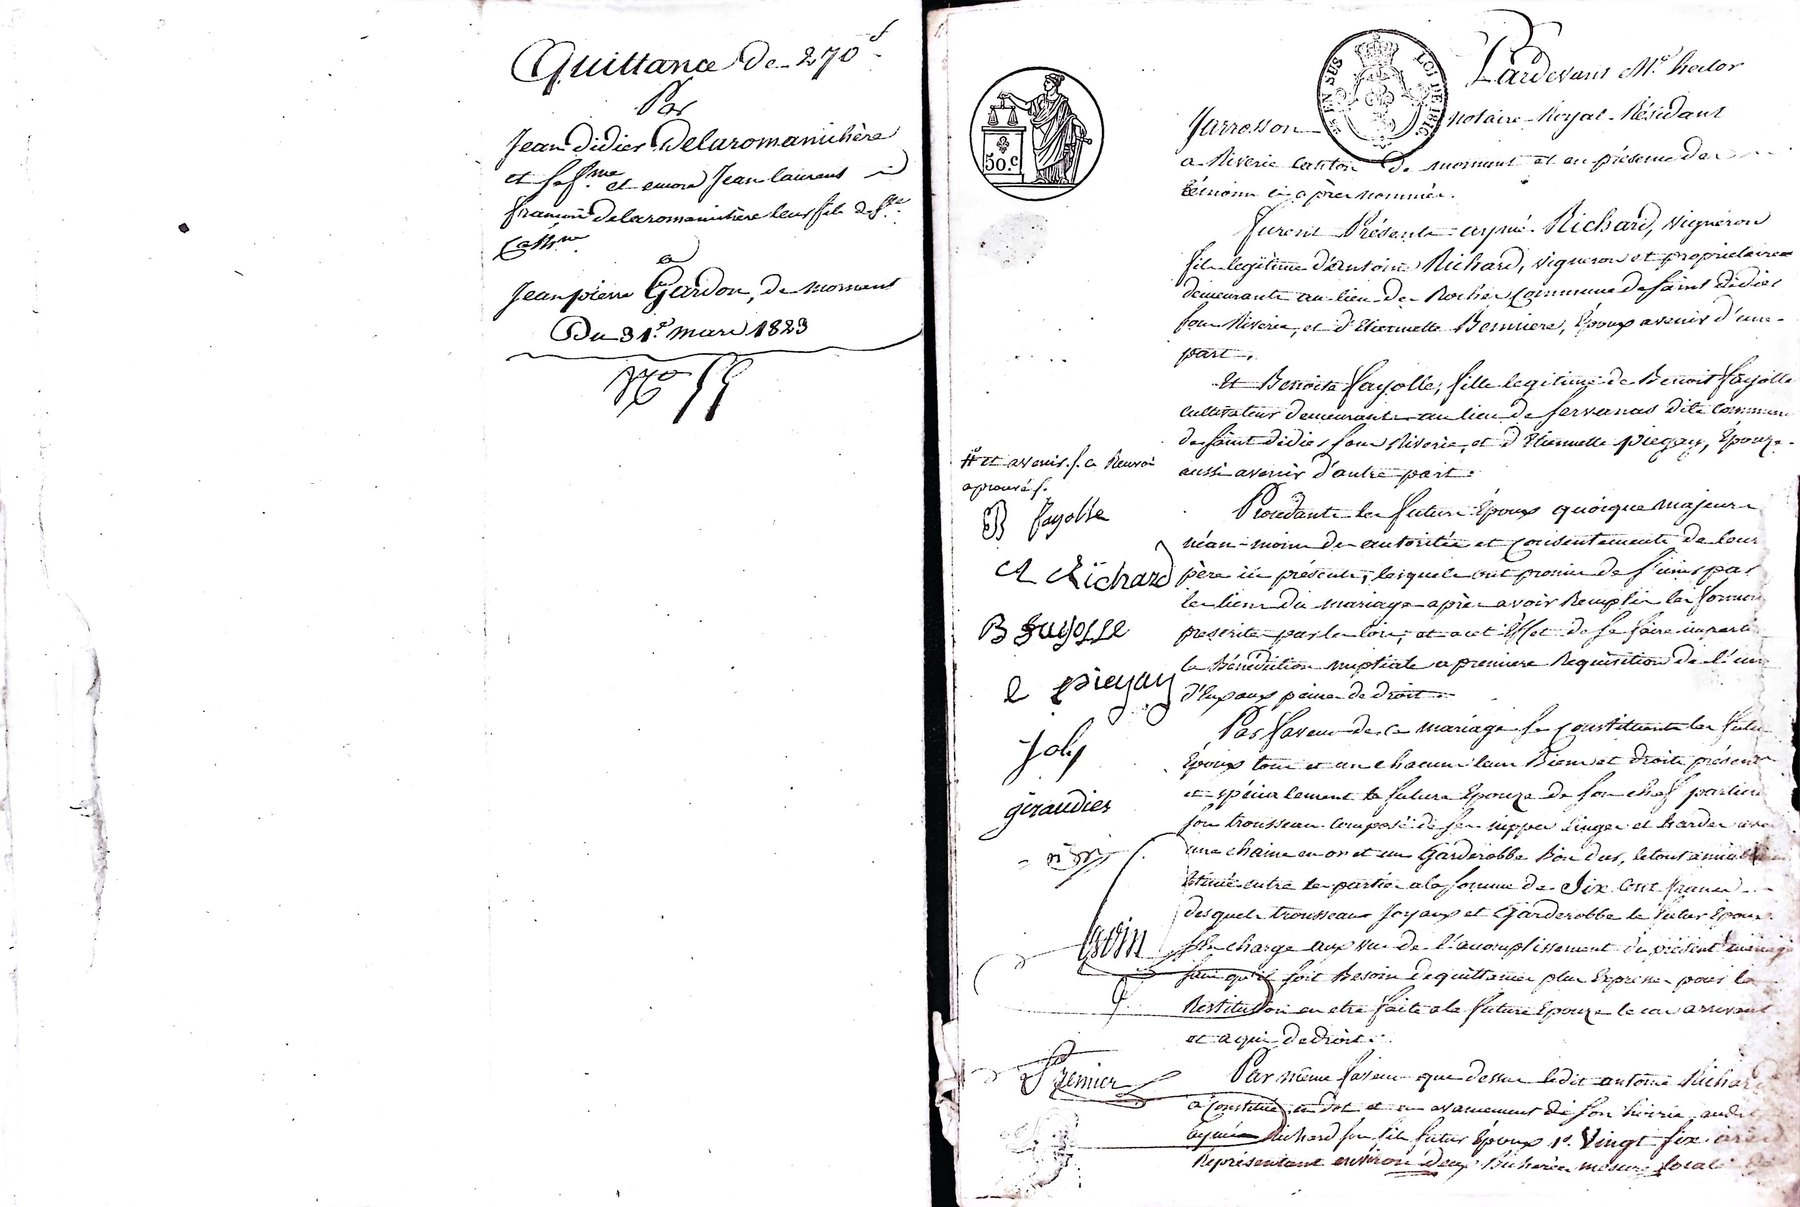 Quittance de 270f
Par
Jean didier Delaromanichère
et sa fme et encore Jean laurent
françois delaromanichère leur fils de Ste
Cathne
a
Jean pierre Gardon, de mornant
Du 31. mars 1823
No 55
25 EN SUS LOI DE 1816
50.c
Pardevant Me hector
Jarrosson notaire Royal Résidant
a Riverie canton de mornant et en présence des
témoins ci après nommés.
furent Présents aymé Richard, vigneron
fils legitime d'antoine Richard, vigneron et propriétaire
demeurants au lieu de Rocher commune de saint didier
sous Riverie, et d'Etiennette Bonniere, Epoux avenir d'une
part.
Et Benoite fayolle, fille legitime de Benoit fayolle
cultivateur demeurants au lieu de servanas dite commune
de saint didier sous Riverie, et d'Etiennette piegay, Epouze
aussi avenir d'autre part.
Procédants les futurs Epoux quoique majeurs
néan-moins des autorités et consentements de leurs
père ici présents, lesquels ont promis de s'unir par
les liens du mariage après avoir Remplis les formes
prescrites par les lois, et a cet Effet de se faire impartir
la Bénédiction nuptiale a premiere Requisition de l'un
d'Eux aux peines de droit.
Par faveur de ce mariage se constituent les futurs
Epoux tous et un chacun leurs Biens et droits présents
et spécialement la future Epouze de son chef particulier
son trousseau composé de ses nippes linges et hardes avec
une chaine en or et un Garderobbe Bon dur, le tout amiablement
Estimé entre les parties a la somme de Six Cent francs
desquels trousseau Joyaux et Garderobbe le futur Epoux
se charge aux vu de l'accomplissement du présent mariage
sans qu'il soit Besoin de quittance plus Expresse pour la
Restitution en etre faite a la future Epouze le cas arrivant
et a qui de droit.
Par même faveur que dessus ledit antoine Richard
a constitué en dot et en avancement de son hoirie audit
aymé Richard son fils futur Epoux 1o. Vingt six ares
Représentant environ deux Bicherées mesure locale
et avenir. f. a Renvoi
aprouvé f.
B fayolle
A Richard
B fayolle
e piegay
Joly
giraudier